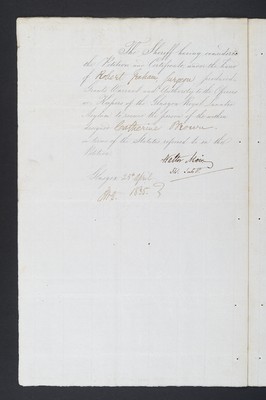 The Sheriff having considered
the Petition and Certificate under the hand
of Robert Graham Surgeon produced
Grants Warrant and Authority to the Officers
or Keepers of the Glasgow Royal Lunatic
Asylum to receive the person of the within
designed Catherine Brown
in terms of the Statutes referred to in the
Petition
Walter Moir
Sh. Subt
Glasgow 28 April
1835